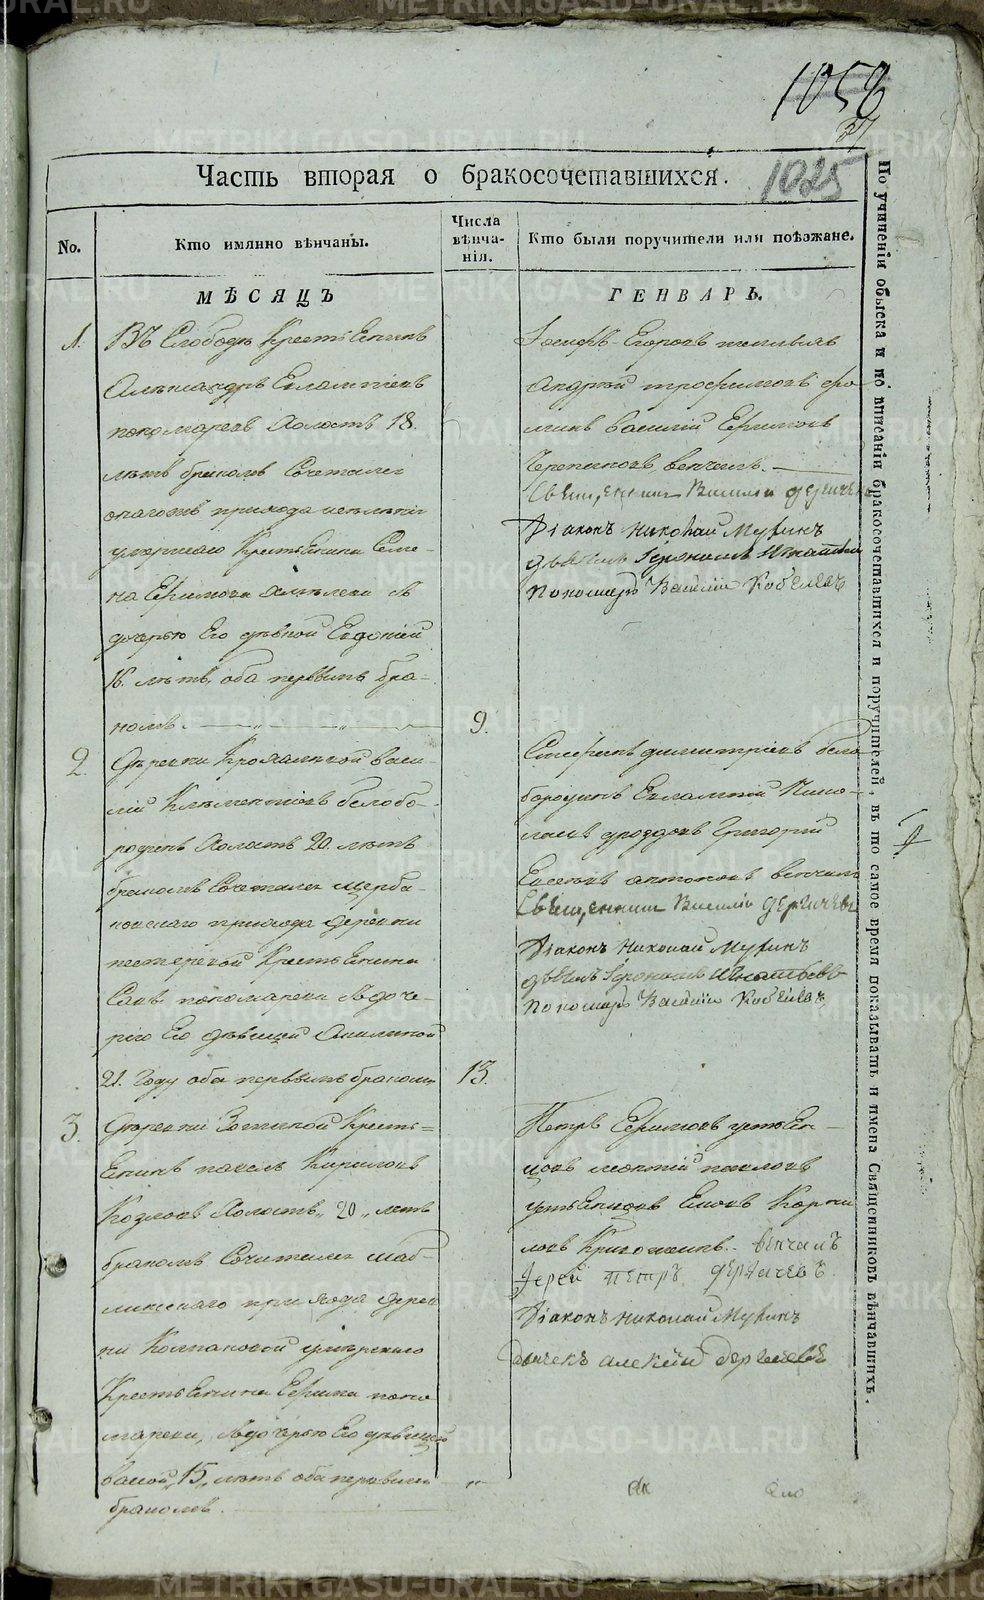 1058
27
Часть вторая о бракосочетавшихся.
1025
No.
Кто имянно вѣнчаны.
Числа
вѣнча-
нія.
Кто были поручители или поѣзжане.
МѢСЯЦЪ
ГЕНВАРЬ.
1.
Въ Слободѣ Крестьенинъ
Александръ Евлампіевъ
пономаревъ Холостъ 18.
лѣтъ бракомъ Сочетался
прихода
умершаго Крестьенина Семе-
на Ефимова съ
дочерью Его дѣвкой Евдокіей
16. лѣтъ, оба первымъ бра-
комъ.
9.
Іосифъ Егоровъ
Андрей трофимовъ фо-
минъ Василий Ефимовъ
Черепановъ, венчалъ.
Священникъ Василій Дергачевъ
Діаконъ Николай Мухинъ
дьячекъ Іеронимъ Игнатьевъ
Пономарь Василій Кобелевъ
2.
Деревни Кромлинкой Васи-
лій Климентіевъ бѣлобо-
родовъ Холостъ 20. лѣтъ
бракомъ Сочетался щерба-
ковскаго прихода деревни
пестеревой Крестьенина
Савы пономарева Здоче-
рію Его дѣвицей Акилиной
21. Году оба первымъ бракомъ
13.
Стефанъ димитріевъ бело
бородовъ Евлампій
дроздовъ Григорій
Евсеевъ антоновъ венчалъ
Священникъ Василій Дергачевъ
Діаконъ Николай Мухинъ
дьячекъ Іеронимъ Игнатьевъ
Пономарь Василій Кобелевъ
3.
Деревни Зотиной Кресть=
Енинъ павелъ Кириловъ
Козловъ Холостъ „20„ летъ
бракомъ Сочитался маб-
линскаго прихода дерев
ни Колпаковой умершаго
Крестьенина Ефима поно
марева, Здочерью Его дѣвицей
Васой „15„ лѣтъ оба первымъ
бракомъ.
„
Петръ Ефимовъ устьЕн-
цовъ леонтій павловъ
устьЕнцовъ Емовъ Корни
ловъ Кривоногинъ. венчалъ
Іерей петръ Дергачевъ
Діаконъ Николай Мухинъ
дьячекъ алексій Дергачевъ
По учиненіи обыска и по вписаніи бракосочетавшихся и поручителей, въ то самое время показывать и имена Священниковъ вѣнчавшихъ.
METRIKI.GASO-URAL.RU